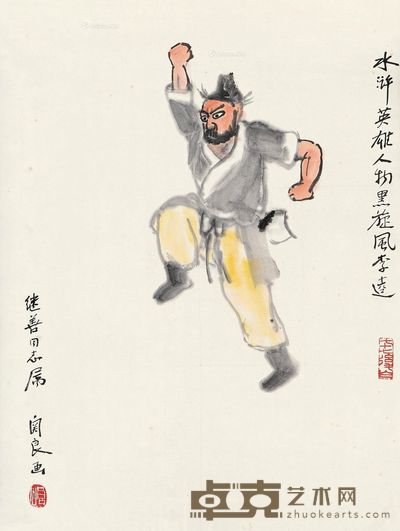 水浒英雄人物黑旋风李逵
继善同志属
关良画
卓克艺术网
www.zhuokearts.com